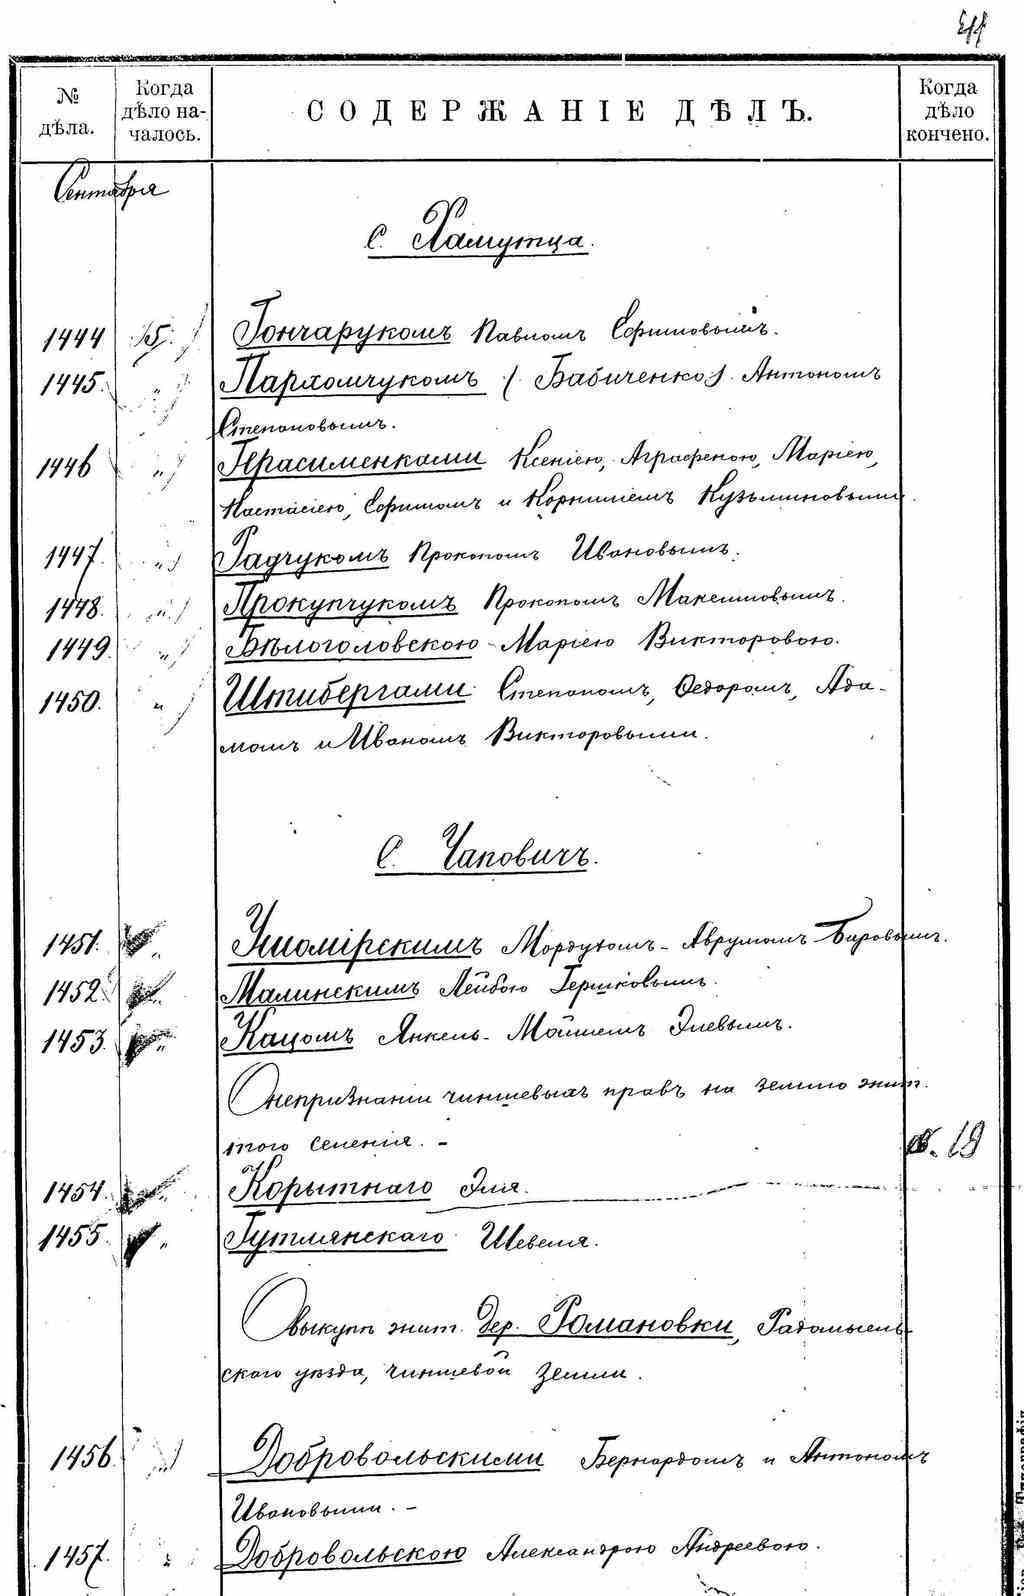 № дѣла.
Когда дѣло на-
чалось.
СОДЕРЖАНІЕ ДѢЛЪ.
Когда дѣло кончено.
Сентября
С. Хамутца.
1444 15. Гончарукомъ Павломъ Ефимовымъ.
1445. " Пархомчукомъ (Бабиченко). Антономъ
Степановымъ.
1446 " Герасименками Ксеніею, Аграфеною, Маріею,
Настасіею, Ефимомъ и Корниліемъ Кузьминовыми.
1447. " Радчукомъ Прокопомъ Ивановымъ.
1448. " Прокупчукомъ Прокопомъ Максимовымъ.
1449. " Бѣлоголовскою Маріею Викторовою.
1450. " Штибергами Степаномъ, Ѳедоромъ, Ада-
момъ и Иваномъ Викторовыми.
С. Чаповичъ.
1451. " Ушомірскимъ Мордухомъ-Аврумомъ Бировымъ.
1452. " Малинскимъ Лейбою Гершковымъ.
1453. " Кацомъ Янкель-Мошкемъ Элевымъ.
О непризнаніи чиншевыхъ правъ на землю жит.
того селенія. –
19
1454. " Корытнаго Эля.
1455. " Гутмянскаго Шевеля.
О выкупѣ жит. дер. Романовки, Радомысль-
скаго уѣзда, чиншевой земли.
1456. " Добровольскими Бернардомъ и Антономъ
Ивановыми. –
1457. " Добровольскою Александрою Андреевою.